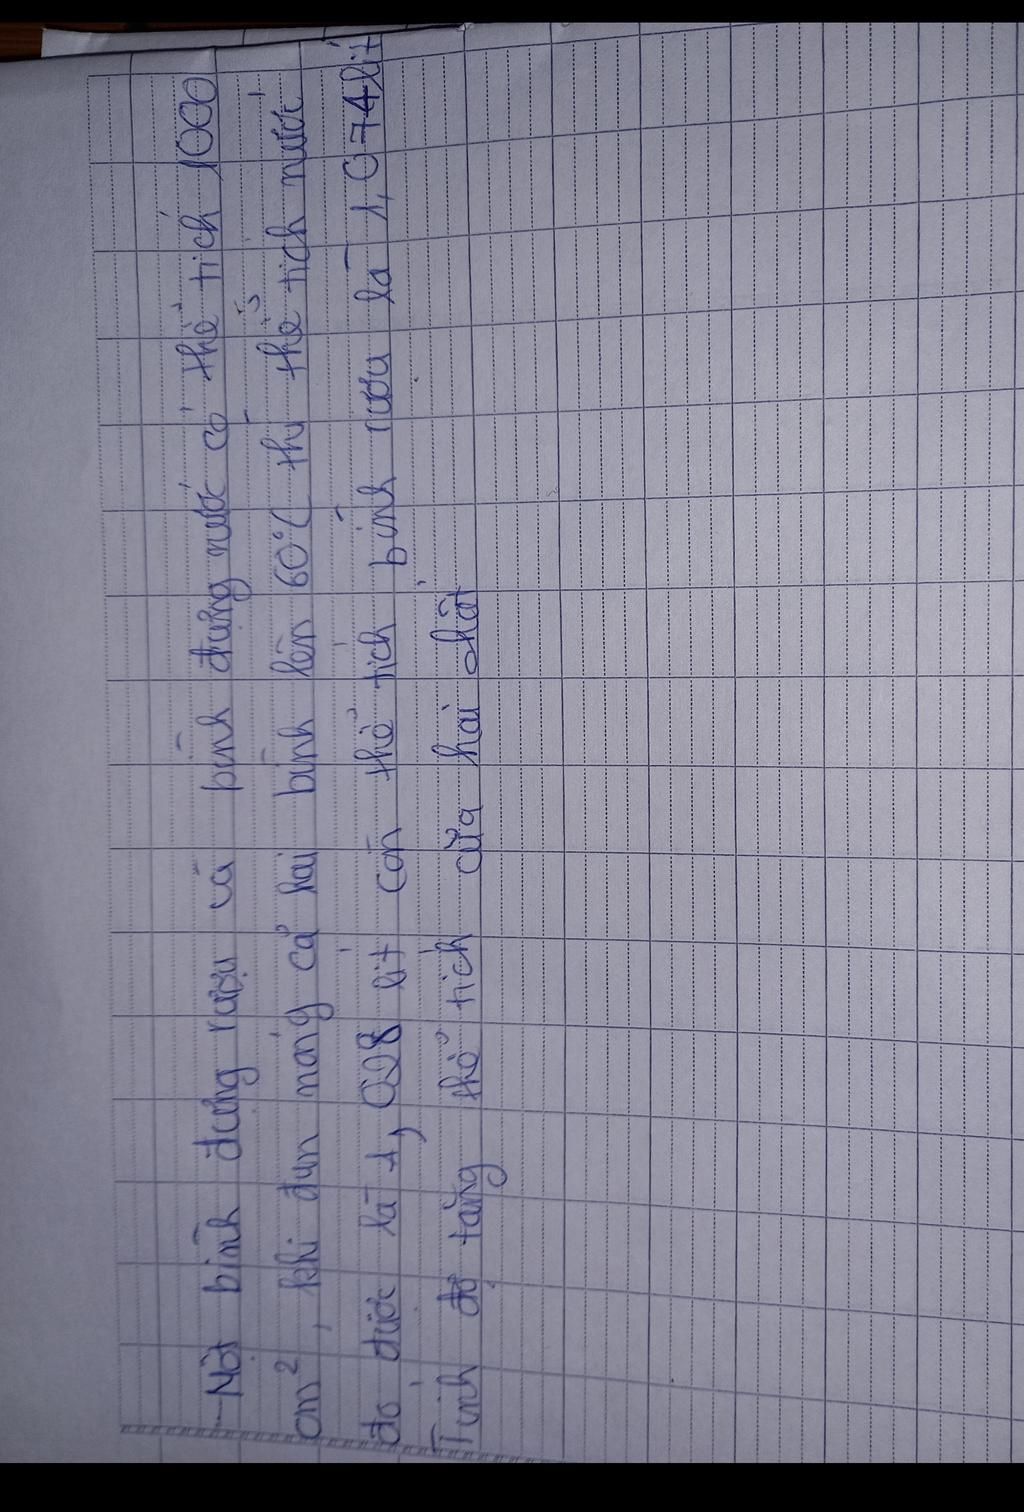 Một bình đựng rượu và bình đựng nước có thể tích 1000
cm², khi đun nóng cả hai bình lên 60°C thì thể tích nước
đo được là 1,028 lít còn thể tích bình rượu là 1,074 lít
Tính độ tăng thể tích của hai chất